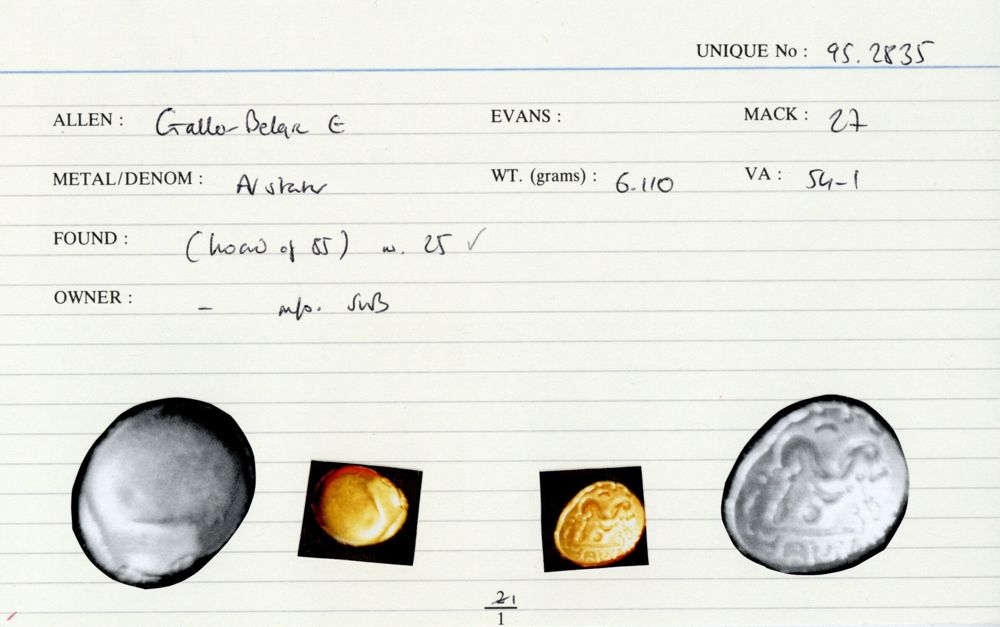 UNIQUE No : 95.2835
ALLEN : Gallo-Belgic E EVANS : MACK : 27
METAL/DENOM : AV stater WT. (grams) : 6.110 VA : 54-1
FOUND : (hoard of 85) 25 ✓
OWNER : - info. SWB
21
1